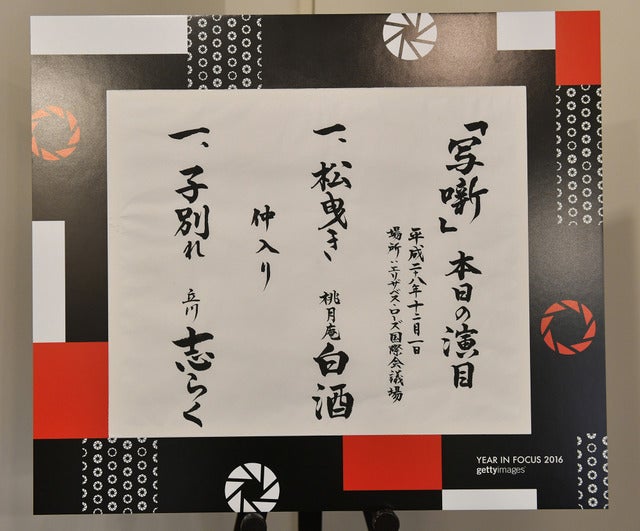 「写噺」 本日の演目
平成二八年十二月一日
場所:エリザベス・ローズ国際会議場
一、松曳き 桃月庵 白酒
仲入り
一、子別れ 立川 志らく
YEAR IN FOCUS 2016
gettyimages®